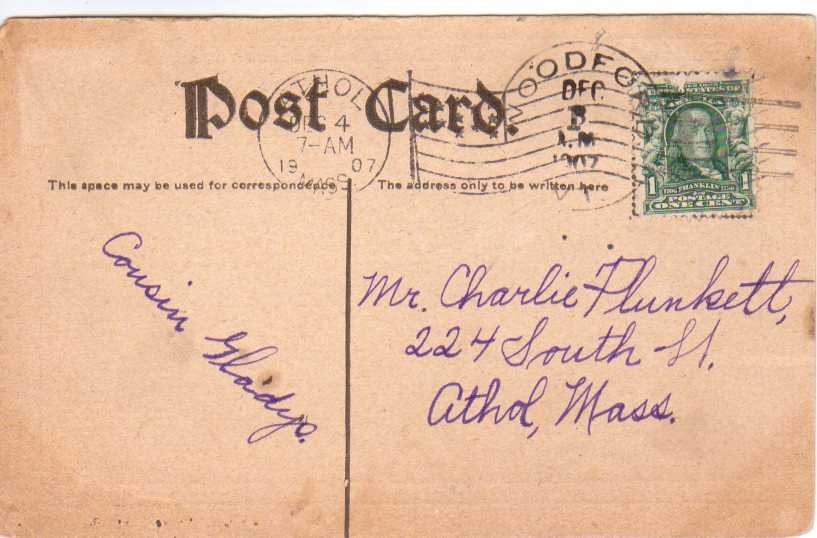 Post Card.
ATHOL
DEC 4
7-AM
19 07
MASS.
WOODFORD
DEC
3
A.M.
1907
VT
UNITED STATES OF
AMERICA
1 1706 FRANKLIN 1790 1
POSTAGE
ONE CENT
This space may be used for correspondence
The address only to be written here
Cousin Gladys.
Mr. Charlie Plunkett,
224 South St.
Athol, Mass.